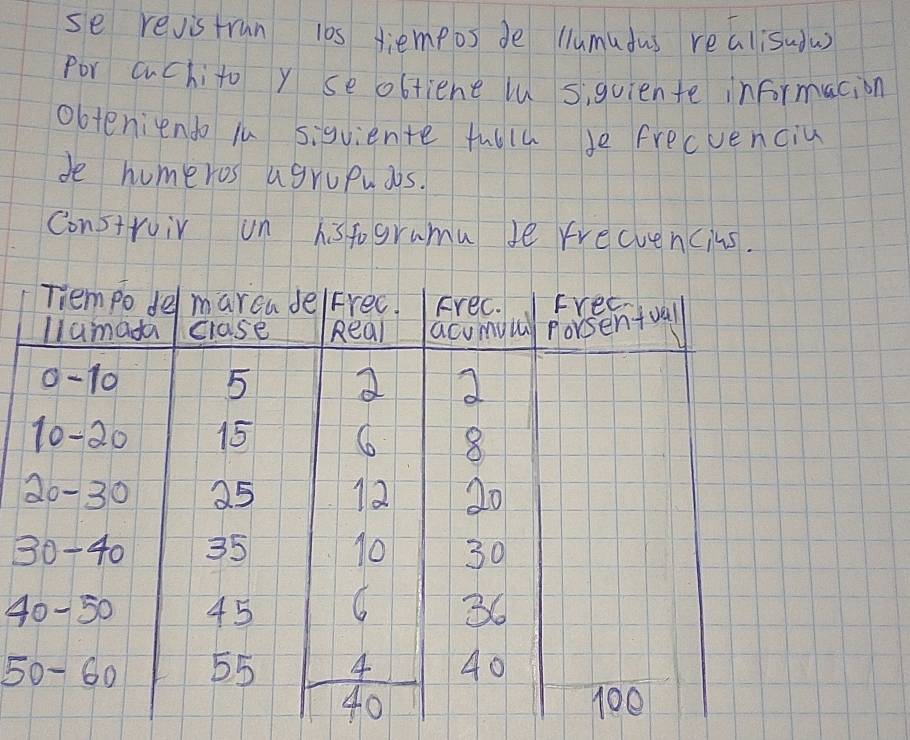 se rejistran los tiempos de llamadas realisadas
Por cuchito y se obtiene la siguiente informacion
Obteniendo la siguiente tabla de frecuencia
de numeros agrupados.
Construir un histograma de frecuencias.
Tiempo de marca de Frec. Frec. Frec.
llamada clase Real acumula Porsentual
0-10 5 2 2
10-20 15 6 8
20-30 25 12 20
30-40 35 10 30
40-50 45 6 36
50-60 55 4 40
40 100